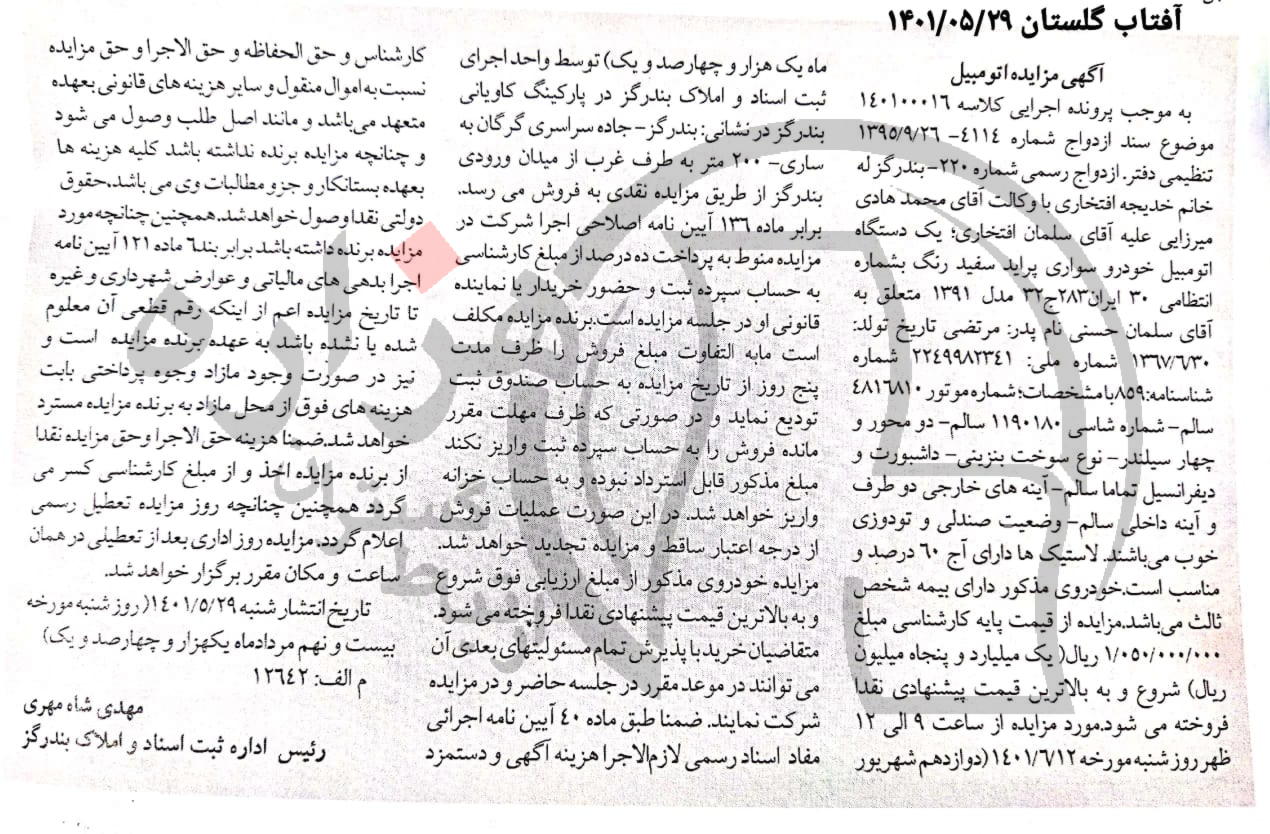 آفتاب گلستان ۱۴۰۱/۰۵/۲۹
آگهی مزایده اتومبیل
به موجب پرونده اجرایی کلاسه ۱۴۰۱۰۰۰۱۶
موضوع سند ازدواج شماره ۴۱۱۴- ۱۳۹۵/۹/۲۶
تنظیمی دفتر. ازدواج رسمی شماره ۲۲۰-بندرگز له
خانم خدیجه افتخاری با وکالت آقای محمد هادی
میرزایی علیه آقای سلمان افتخاری؛ یک دستگاه
اتومبیل خودرو سواری پراید سفید رنگ بشماره
انتظامی ۳۰ ایران۲۸۳ج۳۲ مدل ۱۳۹۱ متعلق به
آقای سلمان حسنی نام پدر: مرتضی تاریخ تولد:
۱۳۶۷/۶/۳۰ شماره ملی: ۲۲۴۹۹۸۲۳۴۱ شماره
شناسنامه:۸۵۹با مشخصات؛شماره موتور ۴۸۱۶۸۱۰
سالم- شماره شاسی ۱۱۹۰۱۸۰ سالم- دو محور و
چهار سیلندر- نوع سوخت بنزینی- داشبورت و
دیفرانسیل تماما سالم- آینه های خارجی دو طرف
و آینه داخلی سالم- وضعیت صندلی و تودوزی
خوب می‌باشند. لاستیک ها دارای آج ۶۰ درصد و
مناسب است.خودروی مذکور دارای بیمه شخص
ثالث می‌باشد.مزایده از قیمت پایه کارشناسی مبلغ
۱/۰۵۰/۰۰۰/۰۰۰ ریال( یک میلیارد و پنجاه میلیون
ریال) شروع و به بالاترین قیمت پیشنهادی نقدا
فروخته می شود.مورد مزایده از ساعت ۹ الی ۱۲
ظهر روز شنبه مورخه ۱۴۰۱/۶/۱۲(دوازدهم شهریور
ماه یک هزار و چهارصد و یک) توسط واحد اجرای
ثبت اسناد و املاک بندرگز در پارکینگ کاویانی
بندرگز در نشانی: بندرگز- جاده سراسری گرگان به
ساری- ۲۰۰ متر به طرف غرب از میدان ورودی
بندرگز از طریق مزایده نقدی به فروش می رسد.
برابر ماده ۱۳۶ آیین نامه اصلاحی اجرا شرکت در
مزایده منوط به پرداخت ده درصد از مبلغ کارشناسی
به حساب سپرده ثبت و حضور خریدار یا نماینده
قانونی او در جلسه مزایده است.برنده مزایده مکلف
است مابه التفاوت مبلغ فروش را ظرف مدت
پنج روز از تاریخ مزایده به حساب صندوق ثبت
تودیع نماید و در صورتی که ظرف مهلت مقرر
مانده فروش را به حساب سپرده ثبت واریز نکند
مبلغ مذکور قابل استرداد نبوده و به حساب خزانه
واریز خواهد شد. در این صورت عملیات فروش
از درجه اعتبار ساقط و مزایده تجدید خواهد شد.
مزایده خودروی مذکور از مبلغ ارزیابی فوق شروع
و به بالاترین قیمت پیشنهادی نقدا فروخته می شود.
متقاضیان خرید با پذیرش تمام مسئولیتهای بعدی آن
می توانند در موعد مقرر در جلسه حاضر و در مزایده
شرکت نمایند. ضمنا طبق ماده ۴۰ آیین نامه اجرائی
مفاد اسناد رسمی لازم‌الاجرا هزینه آگهی و دستمزد
کارشناس و حق الحفاظه و حق الاجرا و حق مزایده
نسبت به اموال منقول و سایر هزینه های قانونی بعهده
متعهد می‌باشد و مانند اصل طلب وصول می شود
و چنانچه مزایده برنده نداشته باشد کلیه هزینه ها
بعهده بستانکار و جزو مطالبات وی می باشد.حقوق
دولتی نقدا وصول خواهد شد. همچنین چنانچه مورد
مزایده برنده داشته باشد برابر بند۶ ماده ۱۲۱ آیین نامه
اجرا بدهی های مالیاتی و عوارض شهرداری و غیره
تا تاریخ مزایده اعم از اینکه رقم قطعی آن معلوم
شده یا نشده باشد به عهده برنده مزایده است و
نیز در صورت وجود مازاد وجوه پرداختی بابت
هزینه های فوق از محل مازاد به برنده مزایده مسترد
خواهد شد.ضمنا هزینه حق الاجرا وحق مزایده نقدا
از برنده مزایده اخذ و از مبلغ کارشناسی کسر می
گردد همچنین چنانچه روز مزایده تعطیل رسمی
اعلام گردد، مزایده روز اداری بعد از تعطیلی در همان
ساعت و مکان مقرر برگزار خواهد شد.
تاریخ انتشار شنبه ۱۴۰۱/۵/۲۹( روز شنبه مورخه
بیست و نهم مردادماه یکهزار و چهارصد و یک)
م الف: ۱۲۶۴۲
مهدی شاه مهری
رئیس اداره ثبت اسناد و املاک بندرگز
هزاره